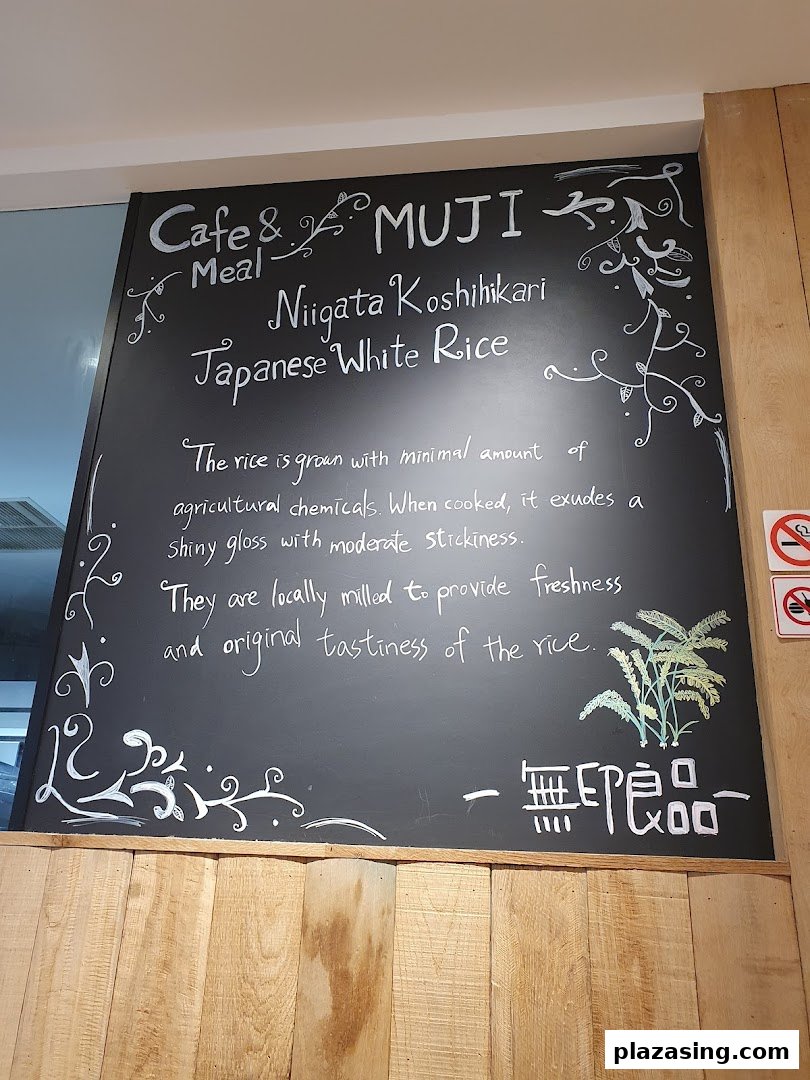 Cafe & Meal MUJI
Niigata Koshihikari
Japanese White Rice
The rice is grown with minimal amount of
agricultural chemicals. When cooked, it exudes a
shiny gloss with moderate stickiness.
They are locally milled to provide freshness
and original tastiness of the rice.
- 無印良品 -
plazasing.com